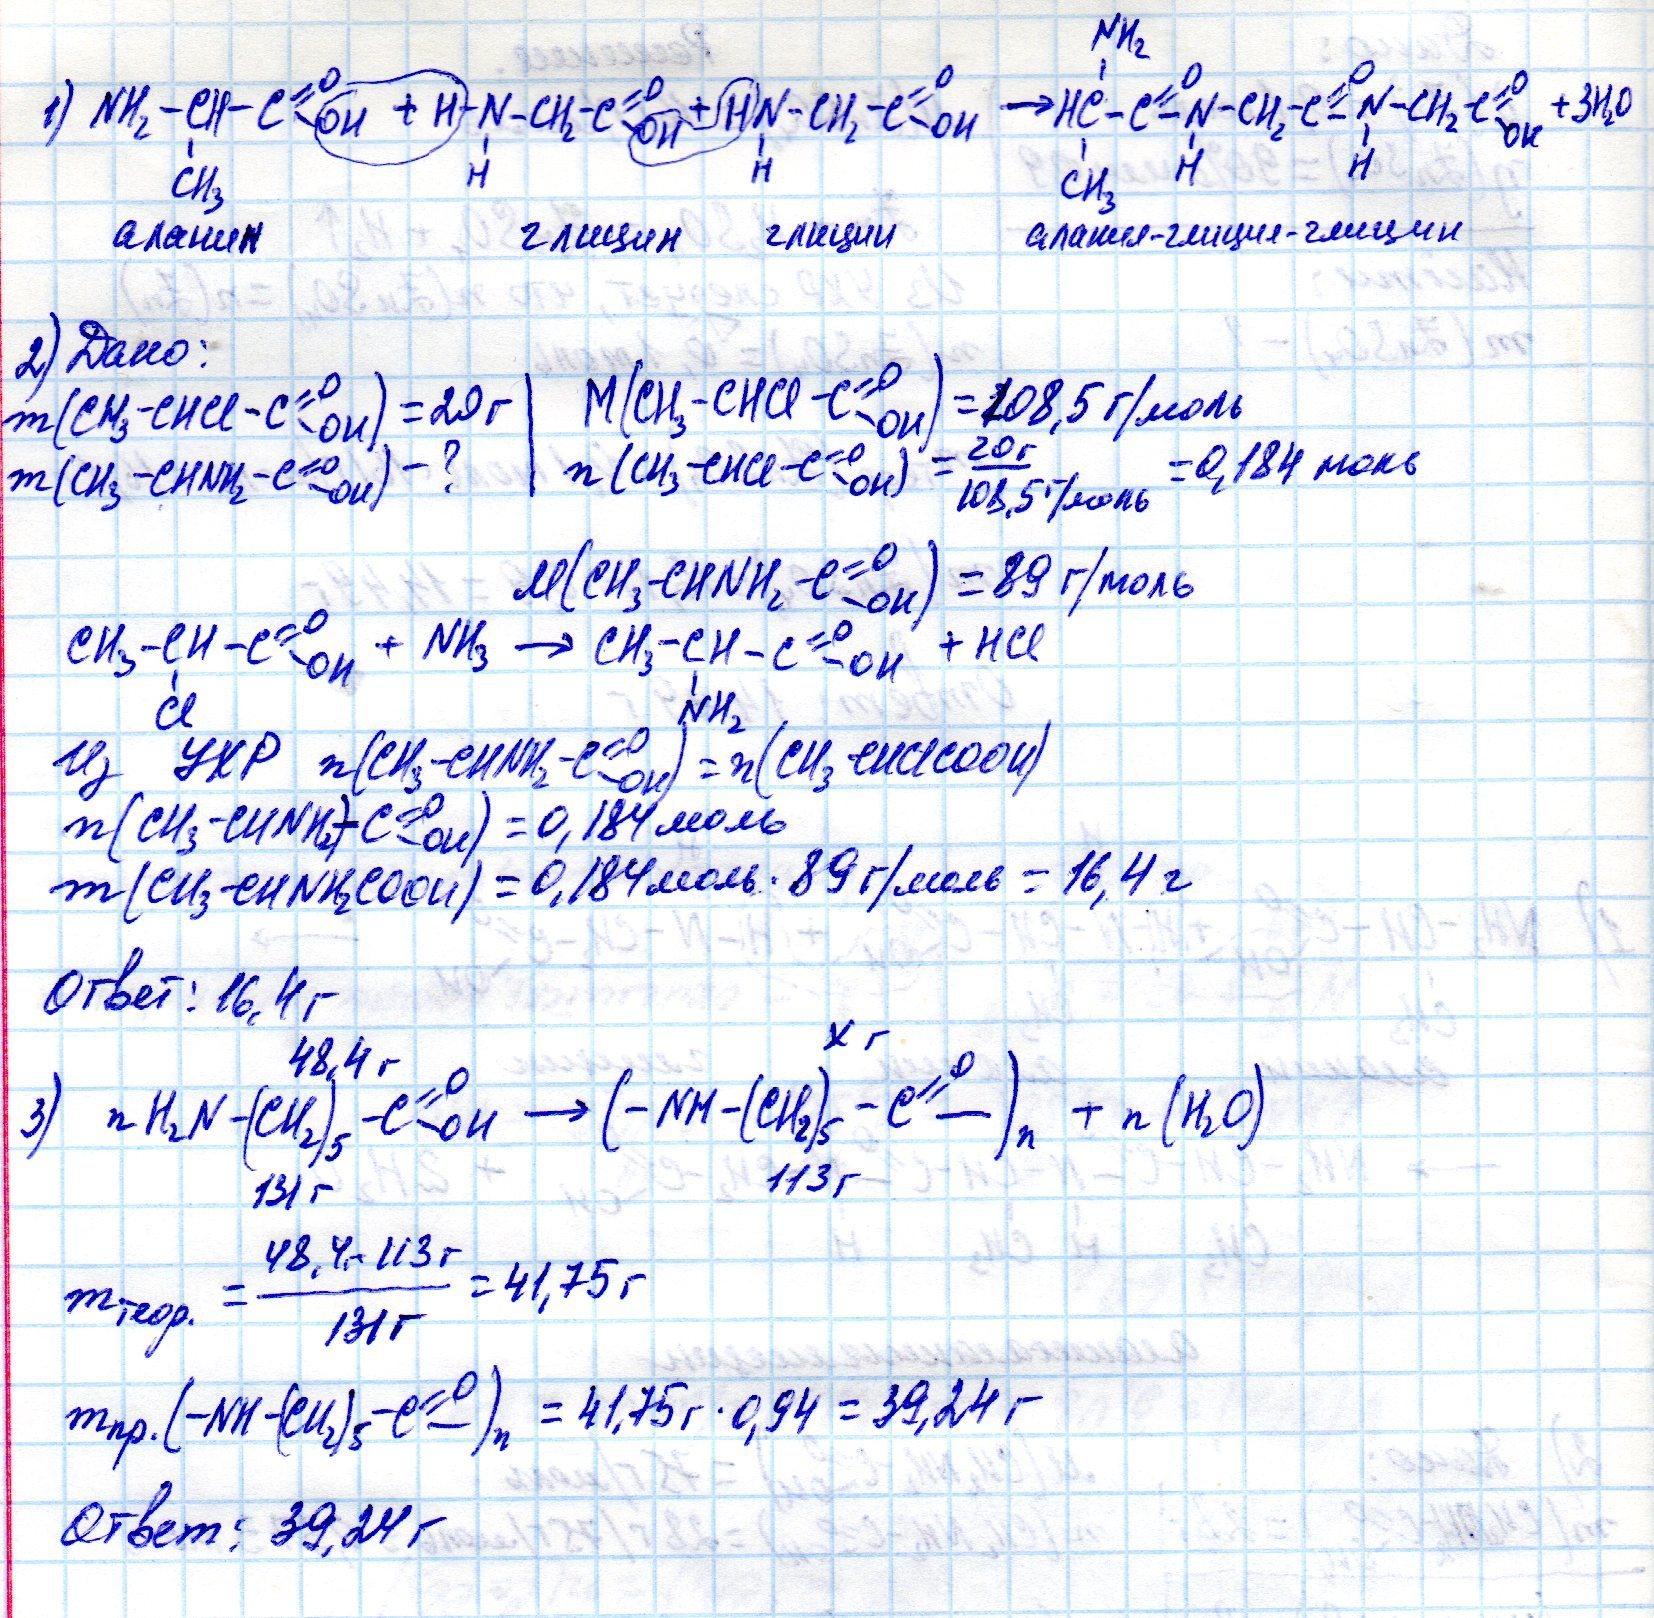 NH₂
1) NH₂–CH–C=O OH + H–N–CH₂–C=O OH + HN–CH₂–C=O OH → HC–C=O–N–CH₂–C=O–N–CH₂–C=O OH + 3H₂O
CH₃ H H CH₃ H H
аланин глицин глицин аланил-глицил-глицин
2) Дано:
m(CH₃–CHCl–C=O OH) = 20 г | M(CH₃–CHCl–C=O OH) = 108,5 г/моль
m(CH₃–CHNH₂–C=O OH) – ? | n(CH₃–CHCl–C=O OH) = 20 г / 108,5 г/моль = 0,184 моль
M(CH₃–CHNH₂–C=O OH) = 89 г/моль
CH₃–CH–C=O OH + NH₃ → CH₃–CH–C=O OH + HCl
Cl NH₂
Из УХР n(CH₃–CHNH₂–C=O OH) = n(CH₃–CHClCOOH)
n(CH₃–CHNH₂–C=O OH) = 0,184 моль
m(CH₃–CHNH₂COOH) = 0,184 моль · 89 г/моль = 16,4 г
Ответ: 16,4 г
48,4 г x г
3) n H₂N–(CH₂)₅–C=O OH → (–NH–(CH₂)₅–C=O –)n + n(H₂O)
131 г 113 г
mтеор. = 48,4 г · 113 г / 131 г = 41,75 г
mпр.(–NH–(CH₂)₅–C=O –)n = 41,75 г · 0,94 = 39,24 г
Ответ: 39,24 г